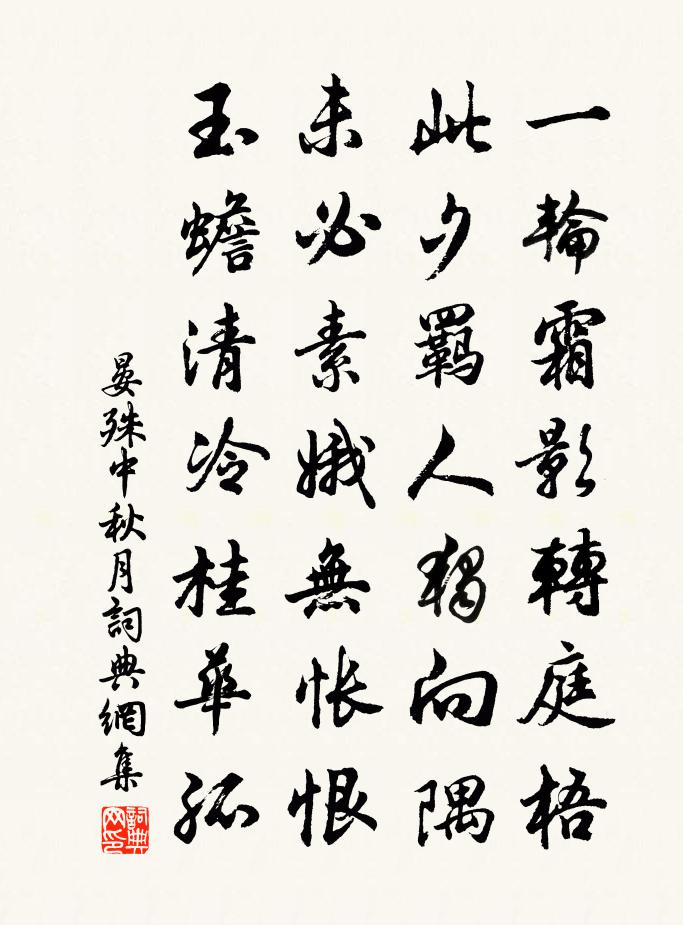 一輪霜影轉庭梧
此夕羈人獨向隅
未必素娥無悵恨
玉蟾清冷桂華孤
晏殊中秋月詞典網集
詞典网印